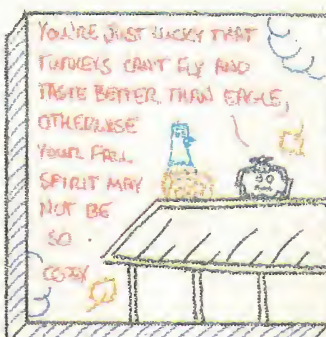 YOU'RE JUST LUCKY THAT
TURKEYS CAN'T FLY AND
TASTE BETTER THAN EAGLE,
OTHERWISE
YOUR FALL
SPIRIT MAY
NOT BE
SO
COZY